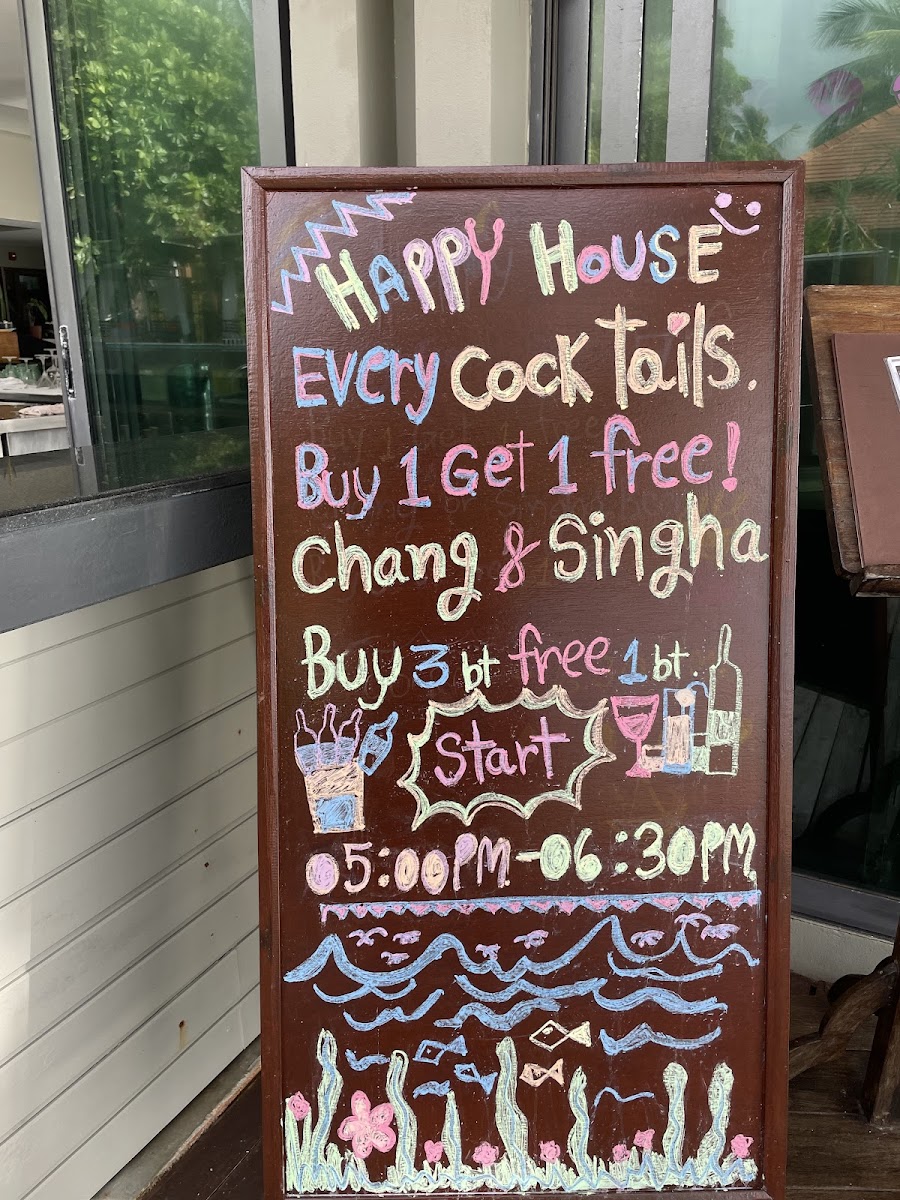 HAPPY HOUSE
EVERY COCKTails.
Buy 1 Get 1 free!
Chang & Singha
Buy 3 bt free 1 bt.
Start
05:00PM.-06:30PM.